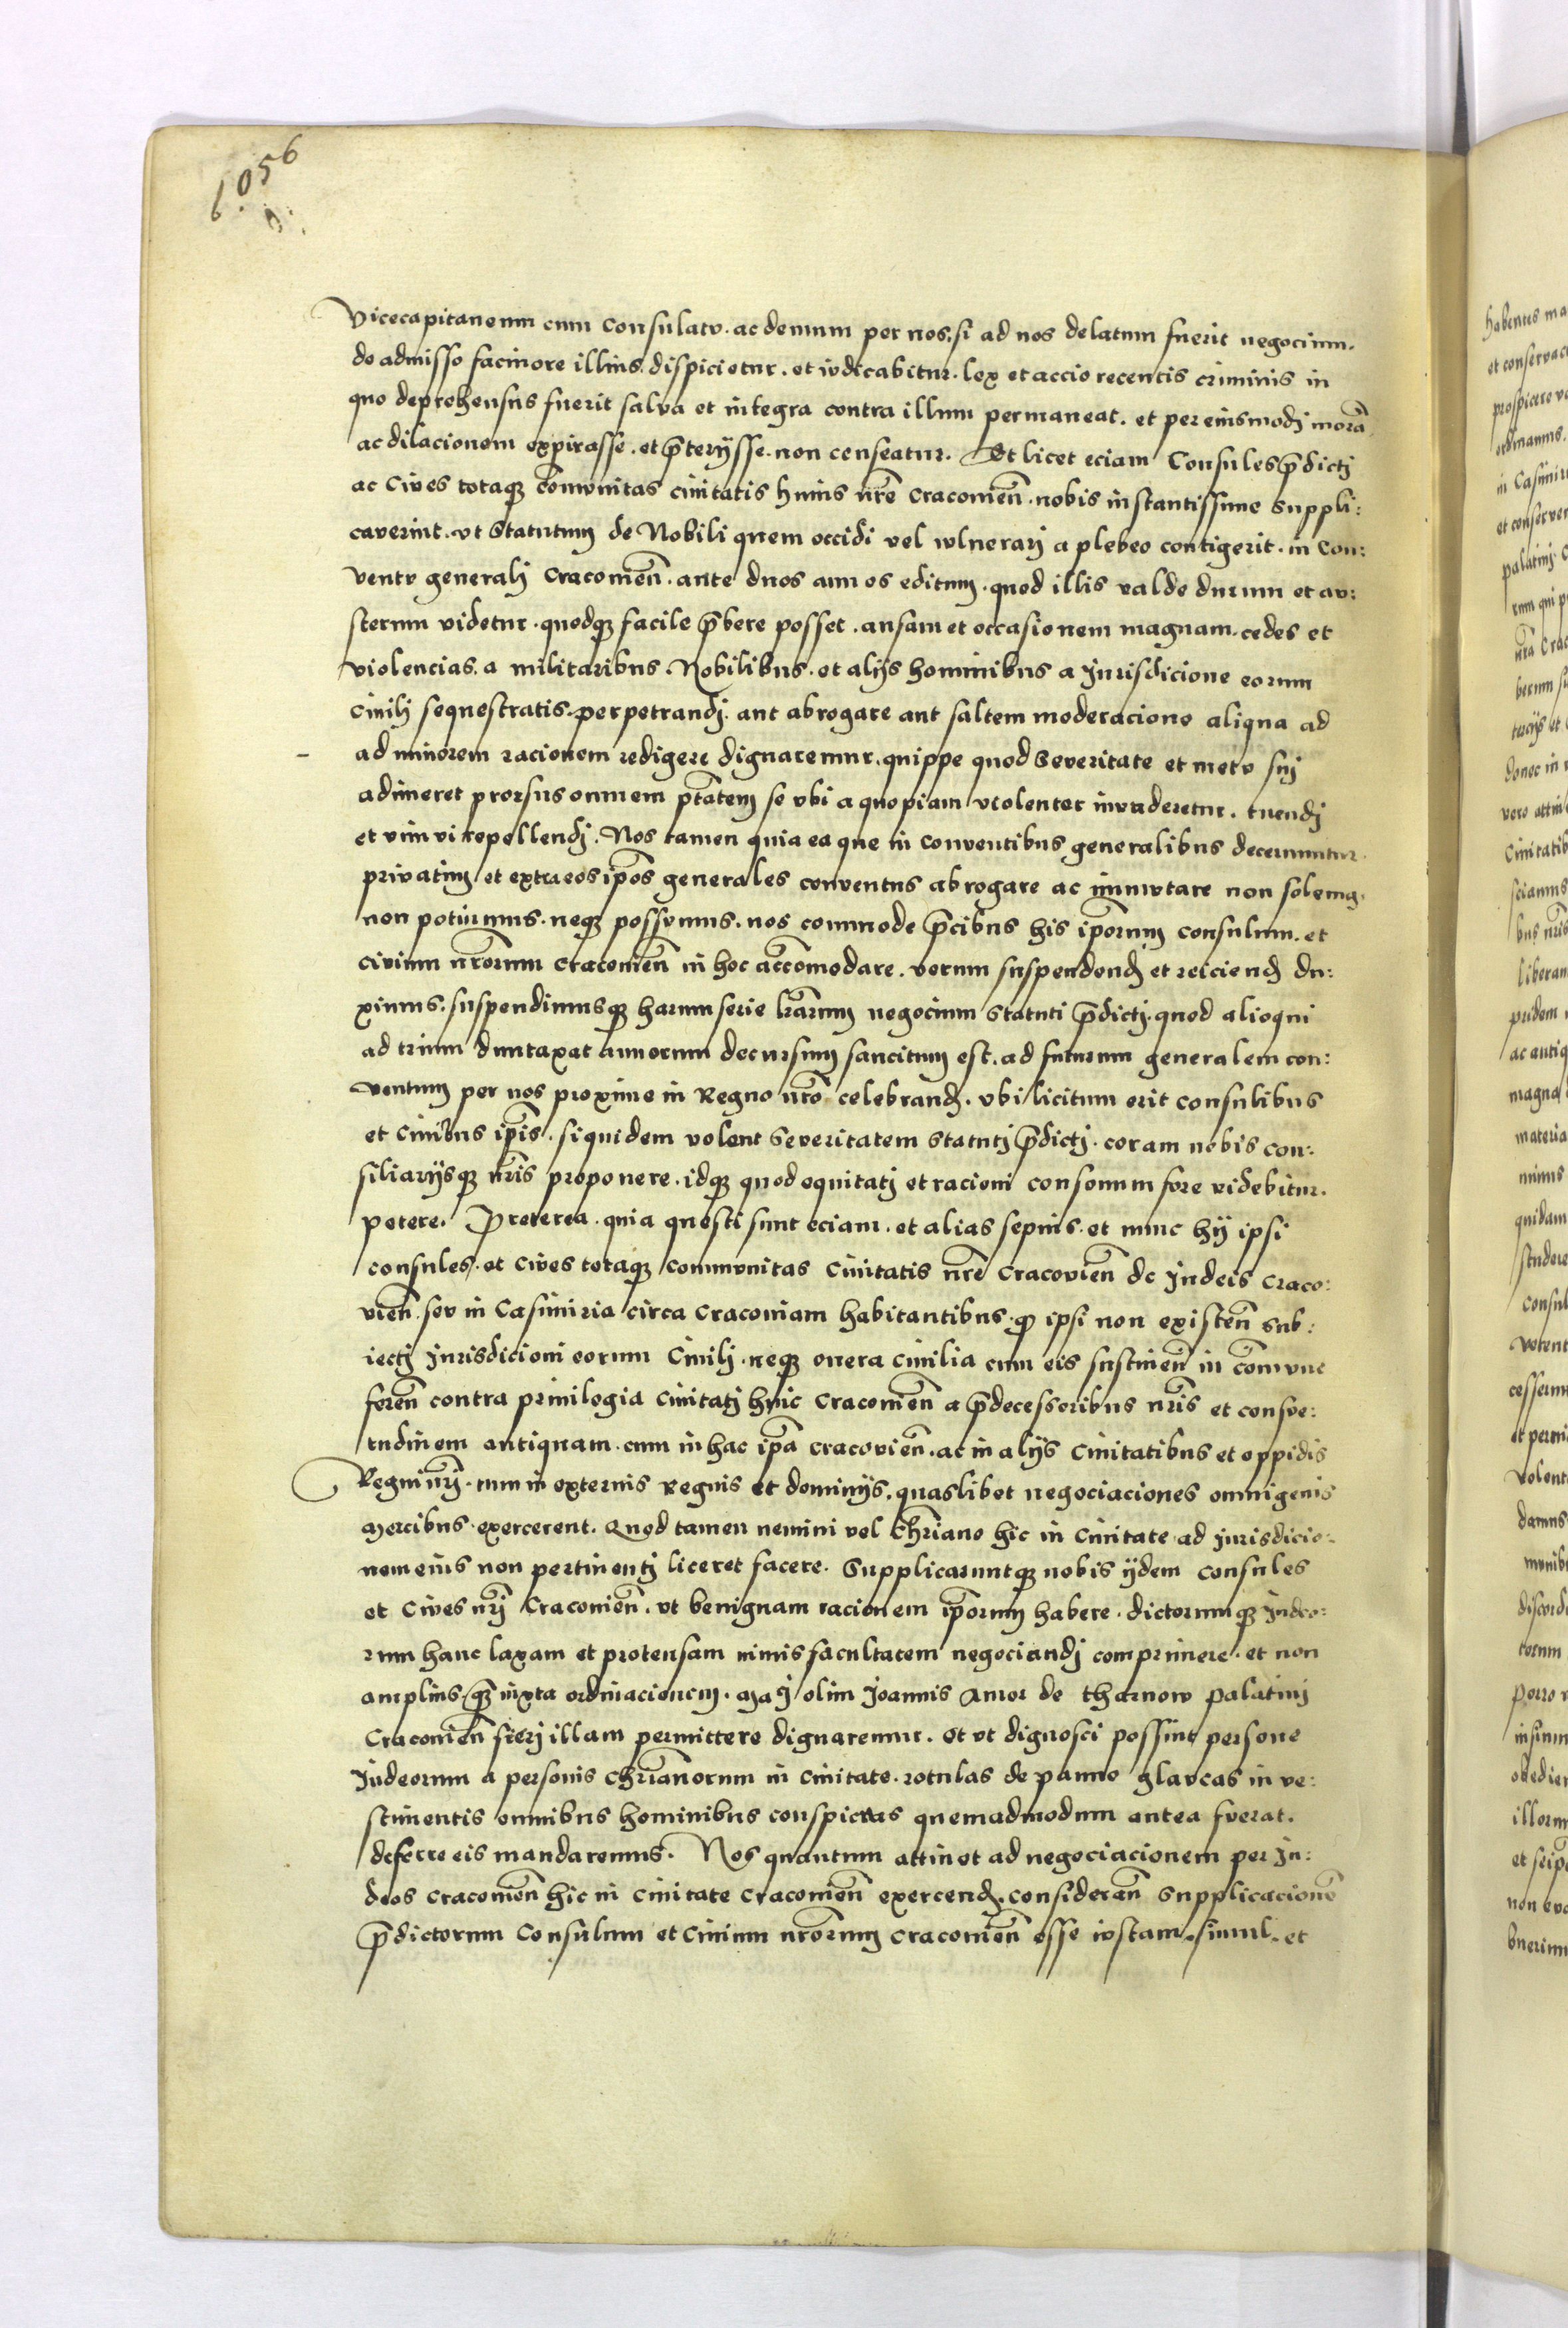 6056
Vicecapitaneum cum Consulatv . ac demum per nos, si ad nos delatum fuerit negocium .
de admisso facinore illius dispicietur . et ivdicabitur . lex et accio recentis criminis in
quo deprehensus fuerit salva et integra contra illum permaneat . et per eiusmodj morā
ac dilacionem expirasse . et p̄terijsse . non censeatur . Et licet eciam Consules p̄dictj
ac Cives totaqȝ Com̄vnitas civitatis huius nr̄e Cracovien̄ . nobis instantissime suppli:
caverint . vt Statutum de Nobili quem occidi vel wlnerarj a plebeo contigerit . in Con:
ventv generalj Cracovien̄ . ante duos annos editum . quod illis valde durum et av:
sterum videtur . quodqȝ facile p̄bere posset . ansam et occasionem magnam . cedes et
violencias . a militaribus . Nobilibus . et alijs hominibus a Jurisdicione eorum
Civilj sequestratis . perpetrandj . aut abrogare aut saltem moderacione aliqua ad
ad minorem racionem redigere dignaremur . quippe quod Severitate et metv suj
adimeret prorsus omnem ptātem se vbi a quopiam violenter invaderetur . tuendj
et vim vi repellendj . Nos tamen quia ea que in conventibus generalibus decernuntur .
privatim et extra eos ip̄os generales conventus abrogare ac immvtare non solemus .
non potuimus . neqȝ possvmus . nos commode p̄cibus his ip̄orum consulum . et
civium nr̄orum Cracovien̄ in hoc accōmodare . verum suspendend̄ et reiciend̄ du:
ximus . suspendimusqȝ harum serie lr̄arum negocium Statuti p̄dictj . quod alioqui
ad trium duntaxat annorum decursum sancitum est . ad futurum generalem con:
ventum per nos proxime in Regno nr̄o celebrand̄ . vbi licitum erit consulibus
et Civibus ip̄is . siquidem volent Severitatem statutj p̄dictj . coram nobis con:
siliarijsqȝ nr̄is proponere . idqȝ quod equitatj et racioni consonum fore videbitur .
petere . Preterea . quia questi sunt eciam . et alias sepius . et nunc hij ipsi
consules . et Cives totaqȝ commvnitas Civitatis nr̄e Cracovien̄ de Judeis Craco:
vien̄ . sev in Casimiria circa Cracoviam habitantibus . ꝙ ipsi non existen̄ sub:
iectj Jurisdicioni eorum Civilj . neqȝ onera civilia cum eis sustinen̄ in com̄vne
feren̄ contra privilegia Civitatj huic Cracovien̄ a p̄decessoribus nr̄is et consve:
tudinem antiquam . cum in hac ip̄a Cracovien̄ . ac in alijs Civitatibus et oppidis
Regni nr̄j . tum in externis regnis et dominijs . quaslibet negociaciones omnigenis
mercibus . exercerent . Quod tamen nemini vel Chr̄iano hic in Civitate ad Jurisdicio:
nem eius non pertinentj liceret facere . Supplicaruntqȝ nobis ijdem consules
et Cives nr̄j Cracovien̄ . vt benignam racionem ip̄orum habere . dictorumqȝ Jvdeo:
rum hanc laxam et protensam nimis facultatem negociandj comprimere . et non
amplius . qȝ iuxta ordinacionem . olim Joannis Amor de Tharnow Palatinj
Cracovien̄ fierj illam permittere dignaremur . et vt dignosci possint persone
Judeorum a personis Chr̄ianorum in Civitate . rotulas de panno glavcas in ve:
stimentis omnibus hominibus conspicuas quemadmodum antea fverat .
deferre eis mandaremus . Nos quantum attinet ad negociacionem per Ju:
deos Cracovien̄ hic in Civitate Cracovien̄ exercend̄ . consideran̄ supplicacionē
p̄dictorum Consulum et Civium nr̄orum Cracovien̄ esse ivstam . simul . et